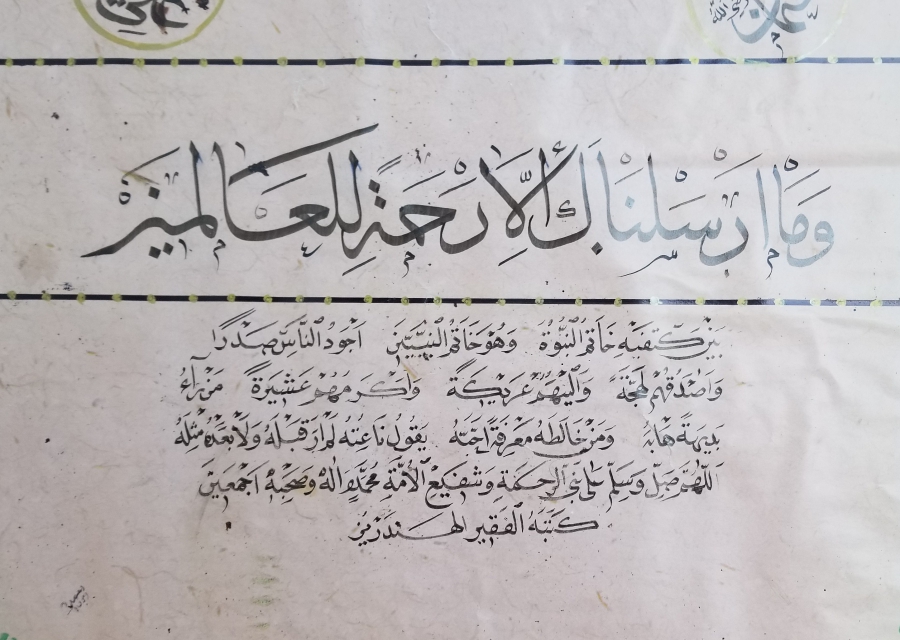 علي
عثمان رضي الله
وَمَا أَرْسَلْنَاكَ إِلَّا رَحْمَةً لِلْعَالَمِينَ
بَيْنَ كَتِفَيْهِ خَاتَمُ النُّبُوَّةِ وَهُوَ خَاتَمُ النَّبِيِّينَ أَجْوَدُ النَّاسِ صَدْرًا
وَأَصْدَقُهُمْ لَهْجَةً وَأَلْيَنُهُمْ عَرِيكَةً وَأَكْرَمُهُمْ عَشِيرَةً مَنْ رَآهُ
بَدِيهَةً هَابَهُ وَمَنْ خَالَطَهُ مَعْرِفَةً أَحَبَّهُ يَقُولُ نَاعِتُهُ لَمْ أَرَ قَبْلَهُ وَلَا بَعْدَهُ مِثْلَهُ
اللّٰهُمَّ صَلِّ وَسَلِّمْ عَلَى نَبِيِّ الرَّحْمَةِ وَشَفِيعِ الْأُمَّةِ مُحَمَّدٍ وَآلِهِ وَصَحْبِهِ أَجْمَعِينَ
كَتَبَهُ الْفَقِيرُ